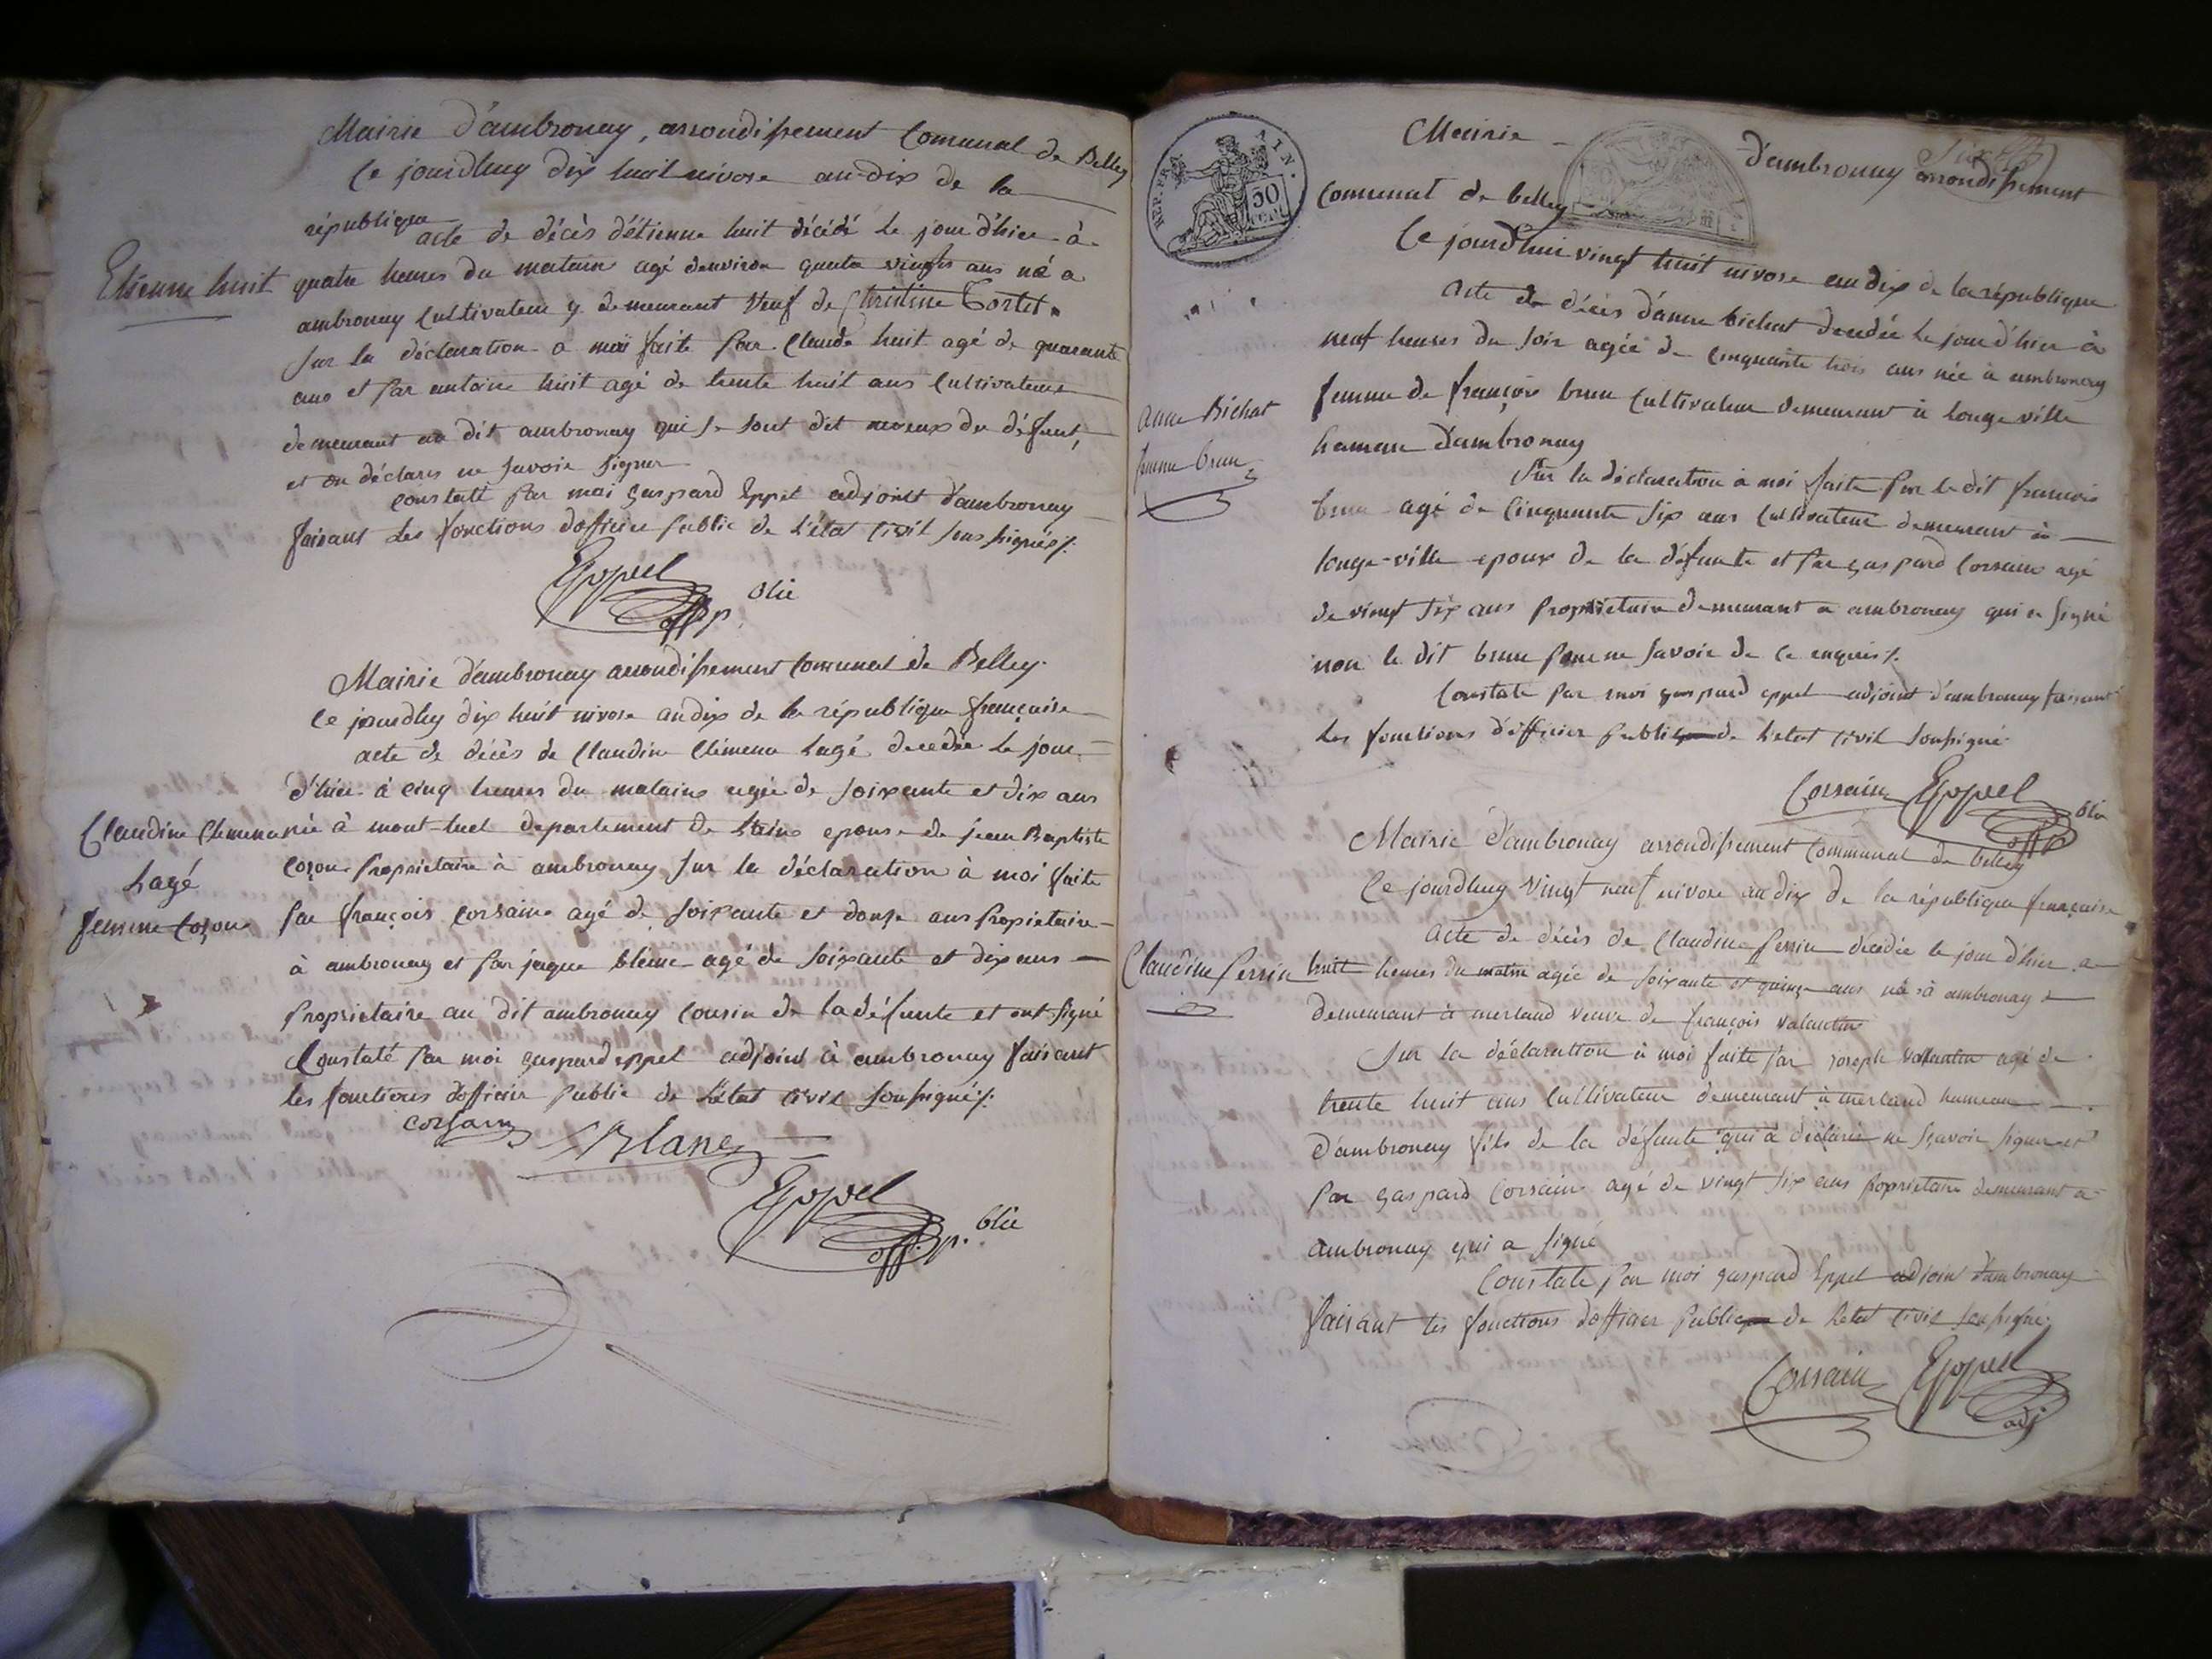 Mairie d'ambronay, arrondissement Comunal de Belley
Ce jourdhuy dix huit nivose an dix de la
république
acte de décès détienne huit décédé le jour d'hier à
Etienne huit
quatre heures du matain agé denviron quatre vingts ans né a
ambronay cultivateur y demeurant veuf de Christine Tortet.
Sur la déclaration a moi faite par Claude huit agé de quarante
ans et par antoine huit agé de trente huit ans cultivateurs
demeurant au dit ambronay qui se sont dit neveux du défunt,
et on déclarés ne savoir signer
constaté par moi gaspard Eppel adjoint d'ambronay
faisant les fonctions dofficier public de l'état civil sous signés /.
Eppel
off. p. blic
Mairie d'ambronay arrondissement comunal de Belley.
Ce jourdhuy dix huit nivose an dix de la république française
acte de décès de Claudine Climena Lagé decedée le jour
d'hier à cinq heures du matains agée de soixante et dix ans
Claudine Clemena
Lagé
femme Cozon
née à mont-luel departement de l'ain epouse de jean Baptiste
Cozon Proprietaire à ambronay Sur la déclaration à moi faite
par françois corsain agé de soixante et douze ans propietaire
à ambronay et par jaque blanc agé de soixante et dix ans
proprietaire au dit ambronay cousin de la défunte et ont signé
Constaté par moi gaspard eppel adjoint à ambronay faisant
les fonctions dofficier public de l'état civil soussigné /.
corsain
Blanc
Eppel
off. p. blic
REP. FRA.
AIN.
50
CEN.
Mairie
d'ambronay arrondissement
comunal de belley
Ce jourd'hui vingt huit nivose an dix de la république
acte de décès d'anne bichat decedée le jour d'hier à
neuf heures du soir agée de cinquante trois ans née à ambronay
anne Bichat
femme brun
femme de françois brun cultivateur demeurant à longe ville
hameau d'ambronay
Sur la déclaration à moi faite par le dit francois
brun agé de cinquante six ans cultivateur demeurant à
longe-ville epoux de la défunte et par gaspard Corsain agé
de vingt six ans proprietaire demeurant a ambronay qui a signé
non le dit brun pour ne savoir de ce enquis /.
Constaté par moi gaspard eppel adjoint d'ambronay faisant
les fonctions d'officier public de l'etat civil soussigné
Corsain Eppel
off p blic
Mairie d'ambronay arrondissement communal de belley
Ce jourdhuy vingt neuf nivose an dix de la république française
acte de décès de Claudine perrin decedée le jour d'hier a
Claudine perrin
huitt heures du matin agée de soixante et quinze ans née à ambronay
demeurant à merland veuve de françois valantin
Sur la déclaration à moi faite par joseph valantin agé de
trente huit ans cultivateur demeurant à merland hameau
d'ambronay fils de la défunte qui à déclaré ne sçavoir signer et
par gaspard Corsain agé de vingt six ans proprietaire demeurant a
ambronay qui a signé
Constaté par moi gaspard Eppel adjoint d'ambronay
faisant les fonctions dofficier public de letat civil soussigné.
Corsain Eppel
adj